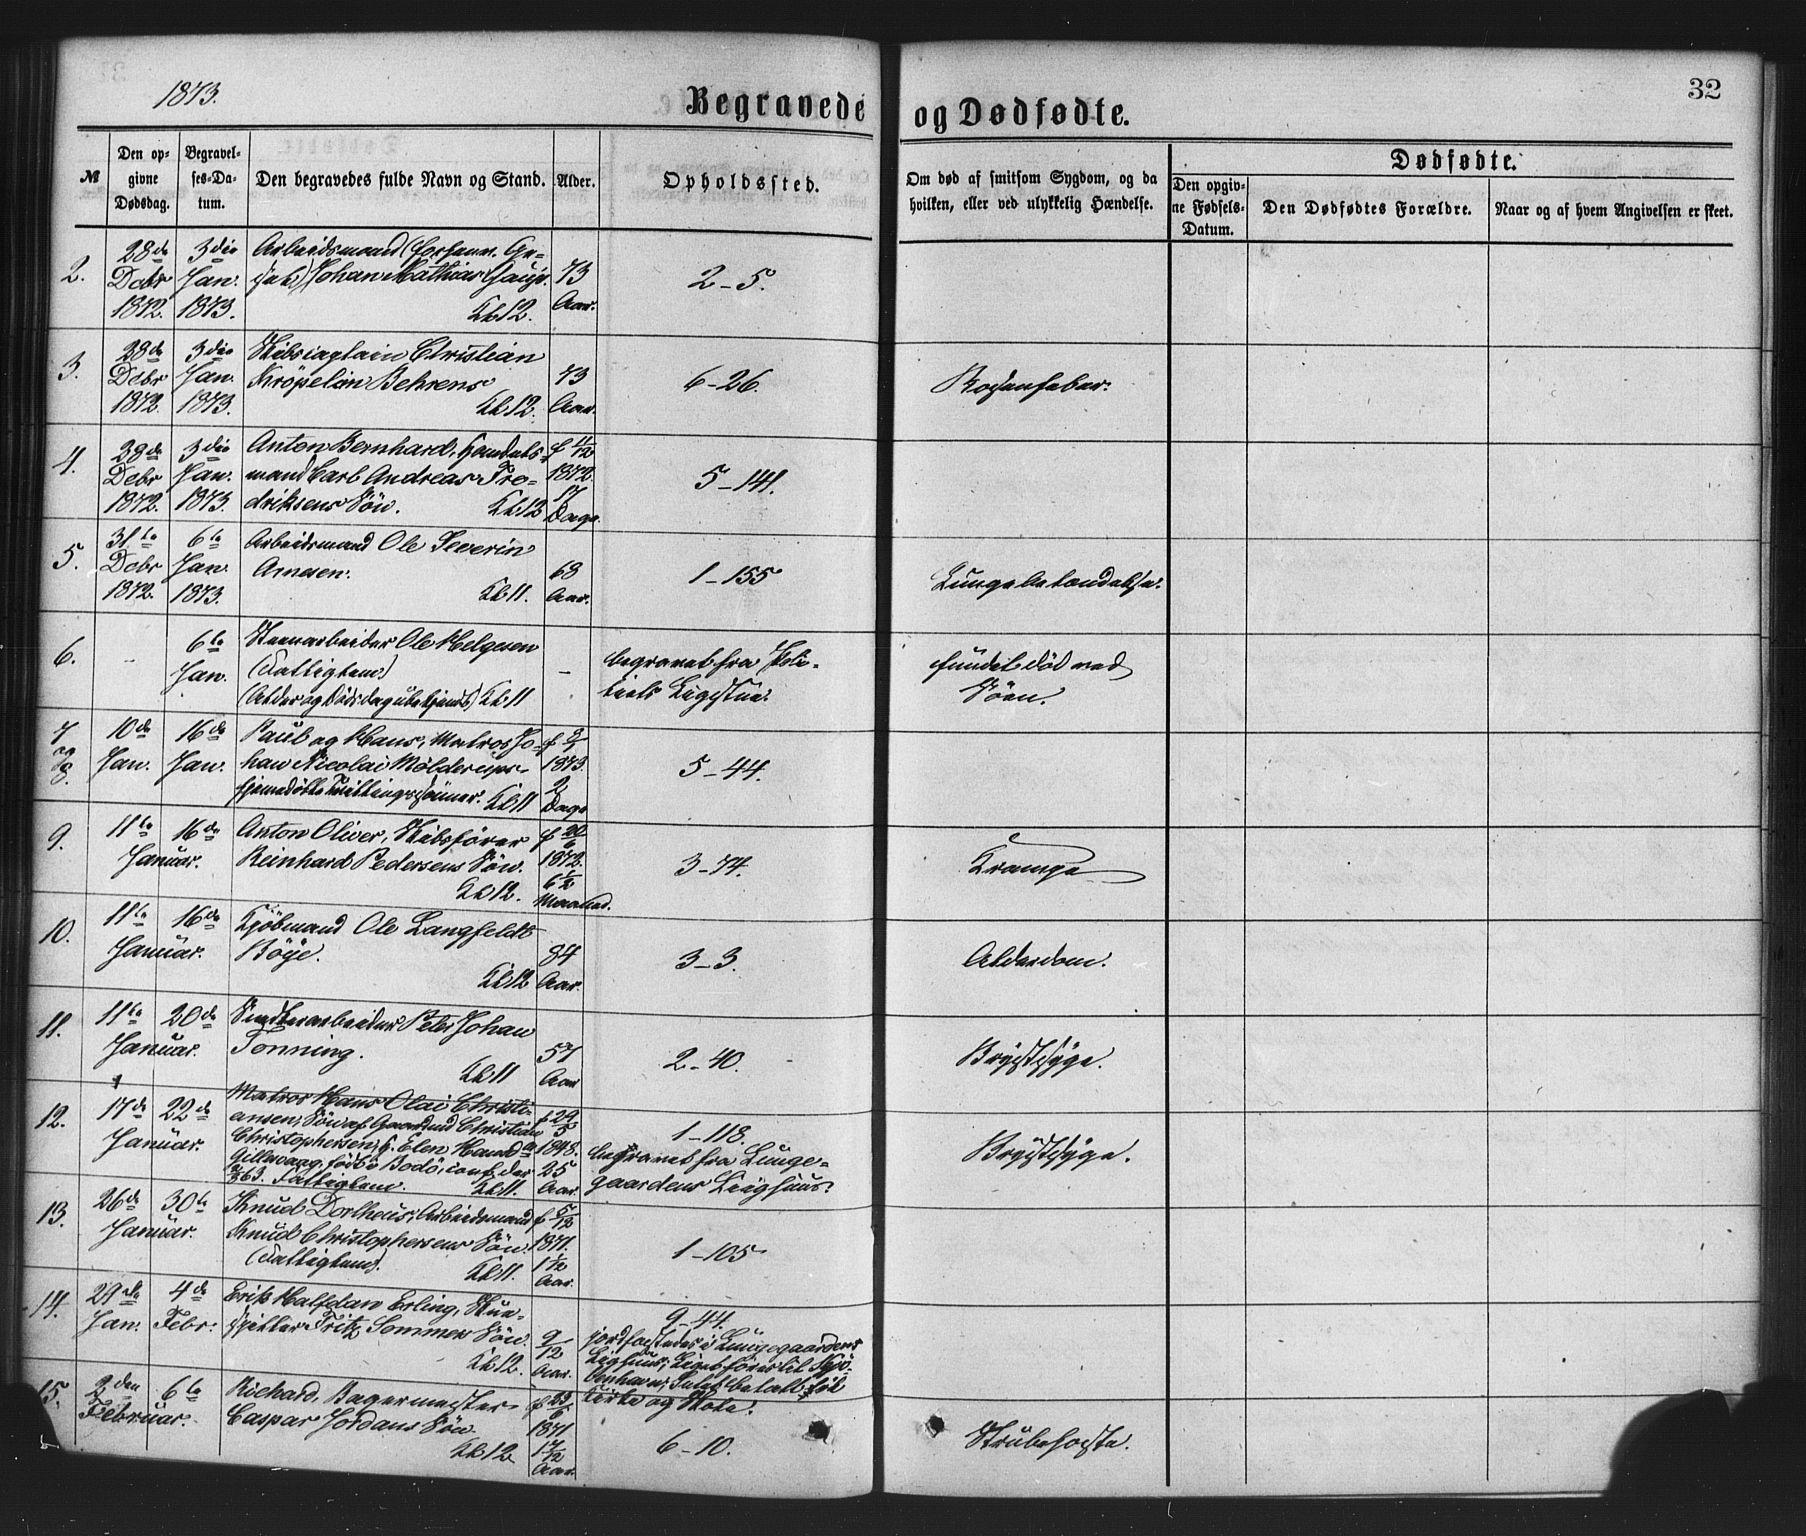 1873.
32
Begravede og Dødfødte.
№
Den opgivne Dødsdag.
Begravelses-Datum.
Den begravedes fulde Navn og Stand.
Alder.
Opholdssted.
Om død af smitsom Sygdom, og da hvilken, eller ved ulykkelig Hændelse.
Dødfødte.
Den opgivne Fødsels-Datum.
Den Dødfødtes Forældre.
Naar og af hvem Angivelsen er skeet.
2.
28de Debr 1872.
3die Jan. 1873.
Arbeidsmand
Johan Mathias
Kb 12.
73 Aar.
2-5.
3.
28de Debr 1872.
3die Jan. 1873.
Skibscaptain Christian
Kröpelin Behrens
Kb 12.
73 Aar.
6-26.
Rosenfeber.
4.
28de Debr 1872.
3die Jan. 1873.
Anton Bernhard, Handels-
mand Carl Andreas Fre-
driksens Søn.
Kb 12
f 11/12 1872.
17 Dage.
5-141.
5.
31te Debr 1872.
6te Jan. 1873.
Arbeidsmand Ole Severin
Arnesen.
Kb 11.
68 Aar.
1-155
Lungebetændelse.
6.
-
6te Jan.
Steenarbeider Ole Helgesen
(Fattiglem)
(Alder og Dødsdag ubekjendt) Kb 11
-
begravet fra Poli-
tiets Ligstue.
fundet död ved
Söen.
7 og 8.
10de Jan.
16de Jan.
Paul og Hans, Matros Jo-
han Nicolai
hjemedøbte Tvillingsönner. Kb 11
f 9/1 1873.
2 Dage
5-44.
9.
11te Januar.
16de
Anton Oliver, Skibsfører
Reinhard Pedersens Søn.
Kb 12.
f 20/6 1872.
6 1/2 Maaned.
3-74.
Krampe
10.
11te Januar.
16de
Kjöbmand Ole Langfeldt
Böye.
Kb 12
84 Aar.
3-3.
Alderdom.
11.
11te Januar.
20de
Peter Johan
Tonning.
Kb 11
57 Aar
2-40.
Brystsyge.
12.
17de Januar.
22de
Matros Hans Olai Christi-
ansen, Søn af Gaardmd Christian
Christophersen, h. Elen
födt i Bodö, conf. der
63. Fattiglem. Kb 11.
f 29/5 1848.
25 Aar.
1-118.
begravet fra Lunge-
gaardens Liighuus.
Brystsyge.
13.
26de Januar.
30te
Knud Dortheus, Arbeidsmand
Knud Christophersens Søn.
(Fattiglem). Kb 11.
f 5/12 1871.
1 1/12 Aar.
1-105
14.
29de Jan.
4de Febr.
Erik Halfdan Erling, Skue-
spiller Fritz Sommers Søn.
Kb 12.
9/12 Aar.
9-44.
jordfæstedes i Lungegaardens
Lighuus, Liget föres til Kjö-
benhavn, betalt til
Kirke og Skole.
15.
2den Februar.
6te
Richard, Bagermester
Caspar Jordans Søn
Kb 12
f 22/6 1871
1 7/12 Aar.
6-10.
Strubehoste.